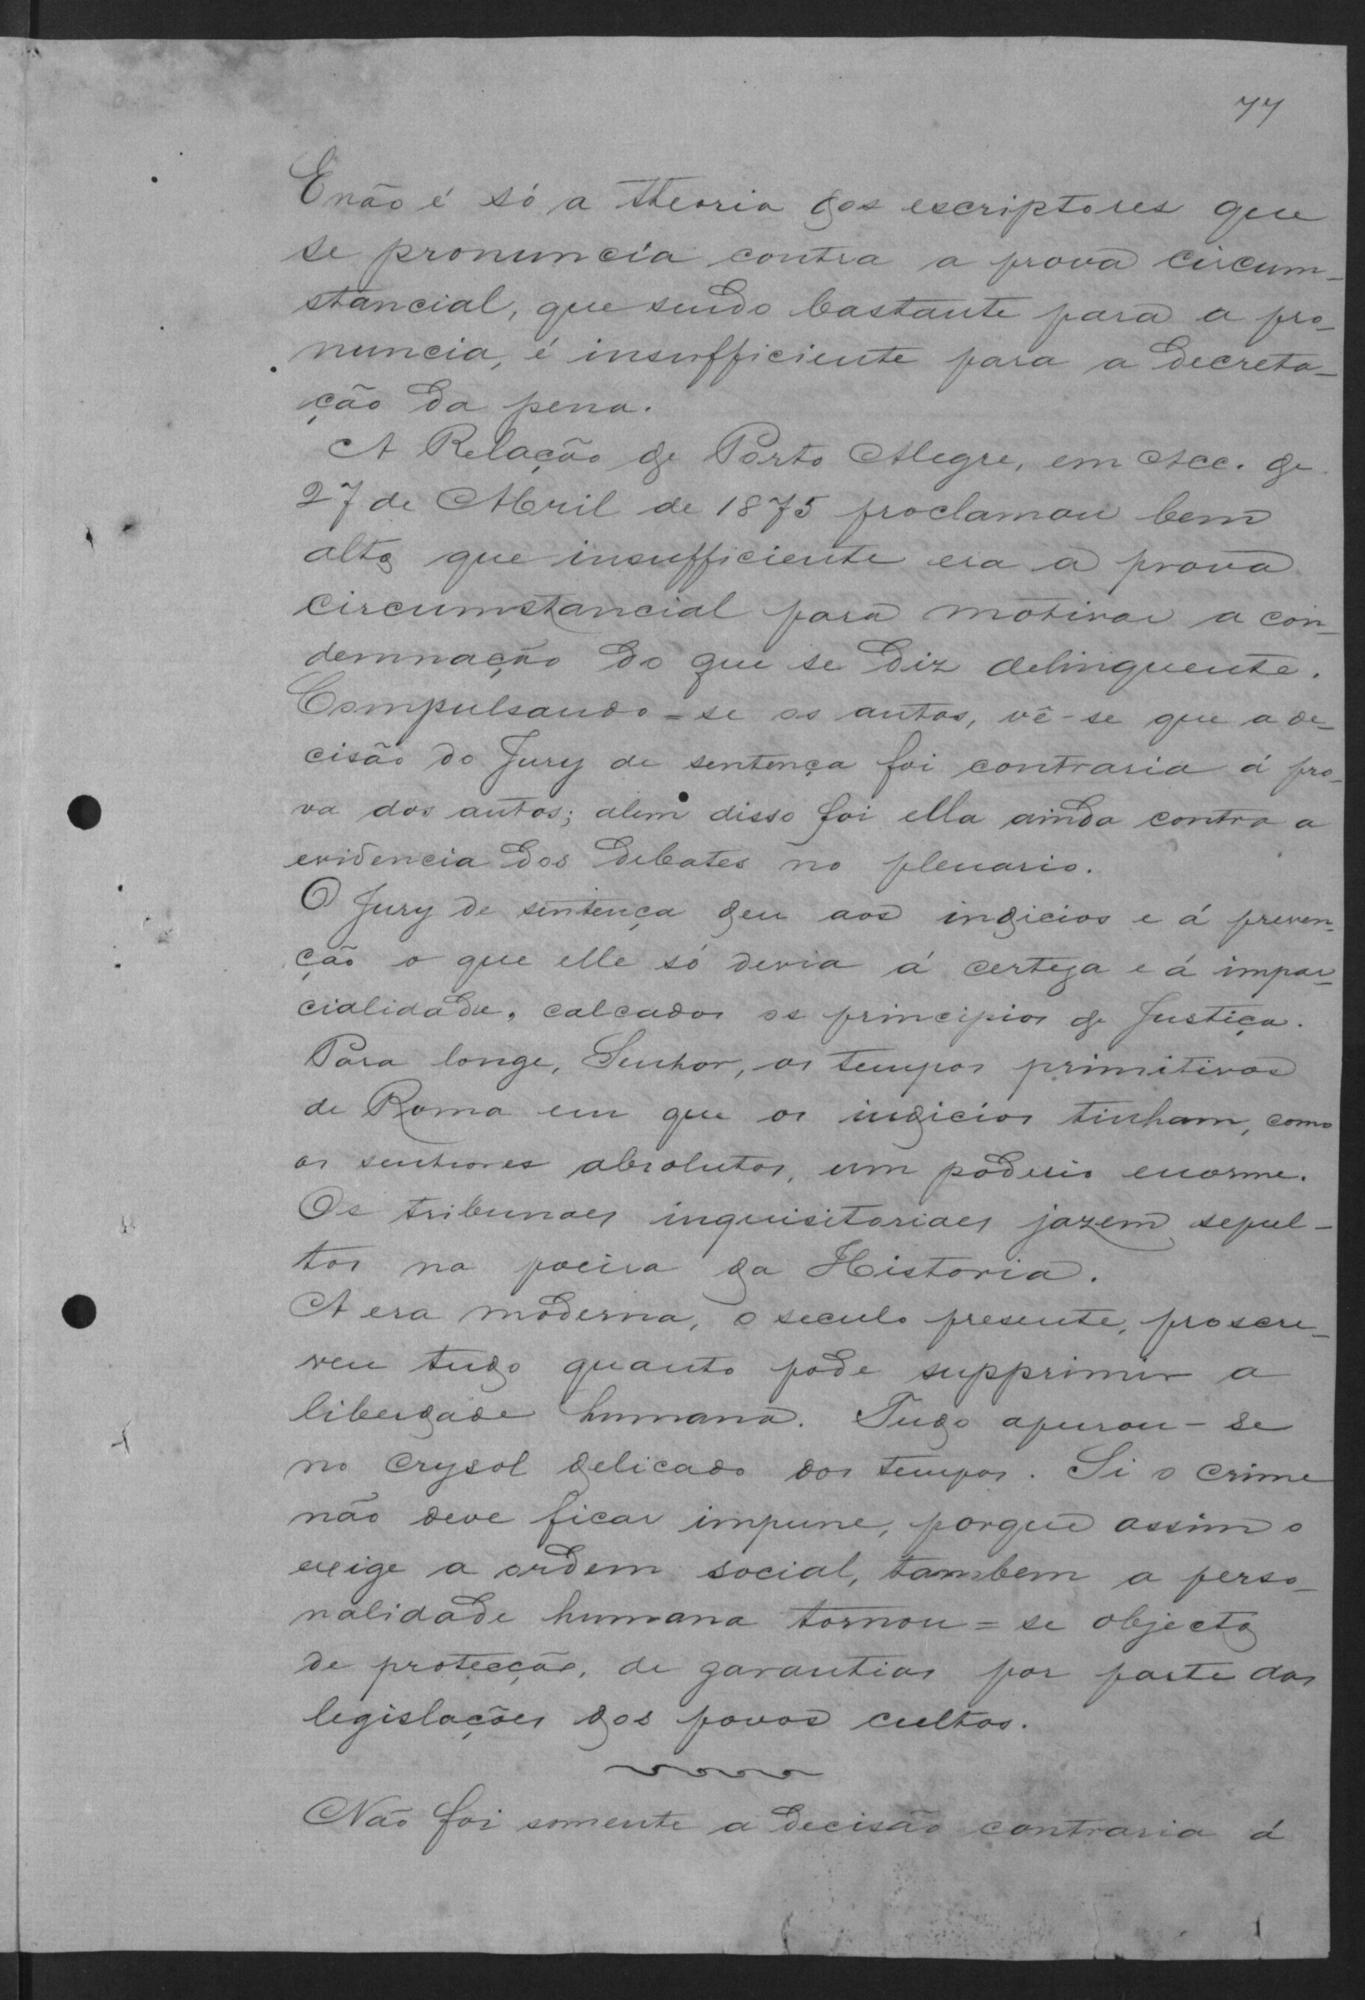 77
E não é só a theoria dos escriptores que
se pronuncia contra a prova circum-
stancial, que sendo bastante para a pro-
nuncia, é insufficiente para a decreta-
ção da pena.
A Relação de Porto Alegre, em Acc. de
27 de Abril de 1875 proclamou bem
alto que insufficiente era a prova
circumstancial para motivar a con-
demnação do que se diz delinquente.
Compulsando=se os autos, vê-se que a de-
cisão do Jury de sentença foi contraria á pro-
va dos autos; alem disso foi ella ainda contra a
evidencia dos debates no plenario.
O Jury de sentença deu aos indicios e á preven-
ção o que elle só devia á certeza e á impar-
cialidade, calcados os principios de Justiça.
Para longe, Senhor, os tempos primitivos
de Roma em que os indicios tinham, como
os senhores absolutos, um poderio enorme.
Os tribunaes inquisitoriaes jazem sepul-
tos na poeira da Historia.
A era moderna, o seculo presente, proscre-
veu tudo quanto pode supprimir a
liberdade humana. Tudo apurou-se
no crysol delicado dos tempos. Si o crime
não deve ficar impune, porque assim o
exige a ordem social, tambem a perso-
nalidade humana tornou=se objecto
de protecção, de garantias por parte das
legislações dos povos cultos.
Não foi somente a decisão contraria á